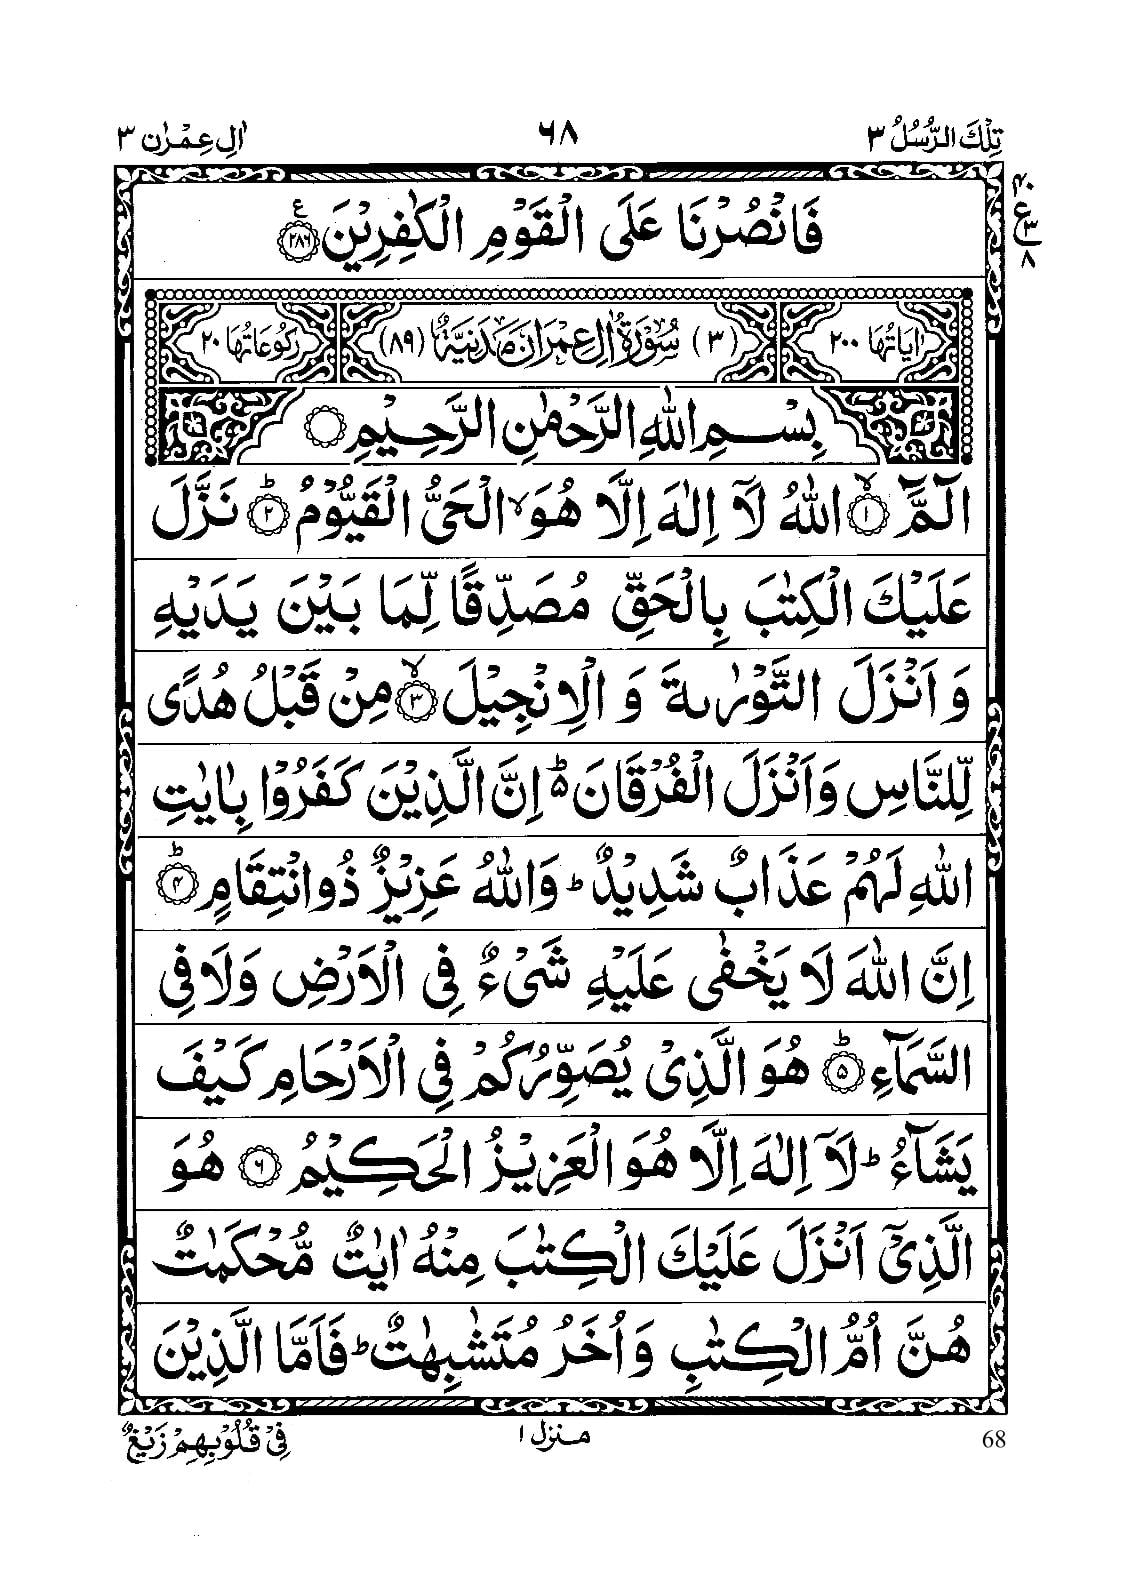 تِلْكَ الرُّسُلُ ٣ ٦٨ اٰلِ عِمْرٰن ٣
٤٠ ع ٣ ٨
فَانْصُرْنَا عَلَى الْقَوْمِ الْكٰفِرِيْنَ ﴿٢٨٦﴾ ع
اٰيَاتُهَا ٢٠٠ (٣) سُوْرَةُ اٰلِ عِمْرَانَ مَدَنِيَّةٌ (٨٩) رُكُوْعَاتُهَا ٢٠
بِسْمِ اللّٰهِ الرَّحْمٰنِ الرَّحِيْمِ
الٓمّٓ ﴿١﴾ۙ اللّٰهُ لَآ اِلٰهَ اِلَّا هُوَ ۙ الْحَىُّ الْقَيُّوْمُ ﴿٢﴾ؕ نَزَّلَ
عَلَيْكَ الْكِتٰبَ بِالْحَقِّ مُصَدِّقًا لِّمَا بَيْنَ يَدَيْهِ
وَ اَنْزَلَ التَّوْرٰىةَ وَ الْاِنْجِيْلَ ﴿٣﴾ۙ مِنْ قَبْلُ هُدًى
لِّلنَّاسِ وَاَنْزَلَ الْفُرْقَانَ ؕ۵ اِنَّ الَّذِيْنَ كَفَرُوْا بِاٰيٰتِ
اللّٰهِ لَهُمْ عَذَابٌ شَدِيْدٌ ؕ وَاللّٰهُ عَزِيْزٌ ذُوانْتِقَامٍ ﴿٤﴾ؕ
اِنَّ اللّٰهَ لَا يَخْفٰى عَلَيْهِ شَىْءٌ فِى الْاَرْضِ وَلَا فِى
السَّمَآءِ ﴿٥﴾ؕ هُوَ الَّذِىْ يُصَوِّرُكُمْ فِى الْاَرْحَامِ كَيْفَ
يَشَآءُ ؕ لَآ اِلٰهَ اِلَّا هُوَ الْعَزِيْزُ الْحَكِيْمُ ﴿٦﴾ هُوَ
الَّذِىْٓ اَنْزَلَ عَلَيْكَ الْكِتٰبَ مِنْهُ اٰيٰتٌ مُّحْكَمٰتٌ
هُنَّ اُمُّ الْكِتٰبِ وَاُخَرُ مُتَشٰبِهٰتٌ ؕ فَاَمَّا الَّذِيْنَ
68 منزل ١ فِىْ قُلُوْبِهِمْ زَيْغٌ